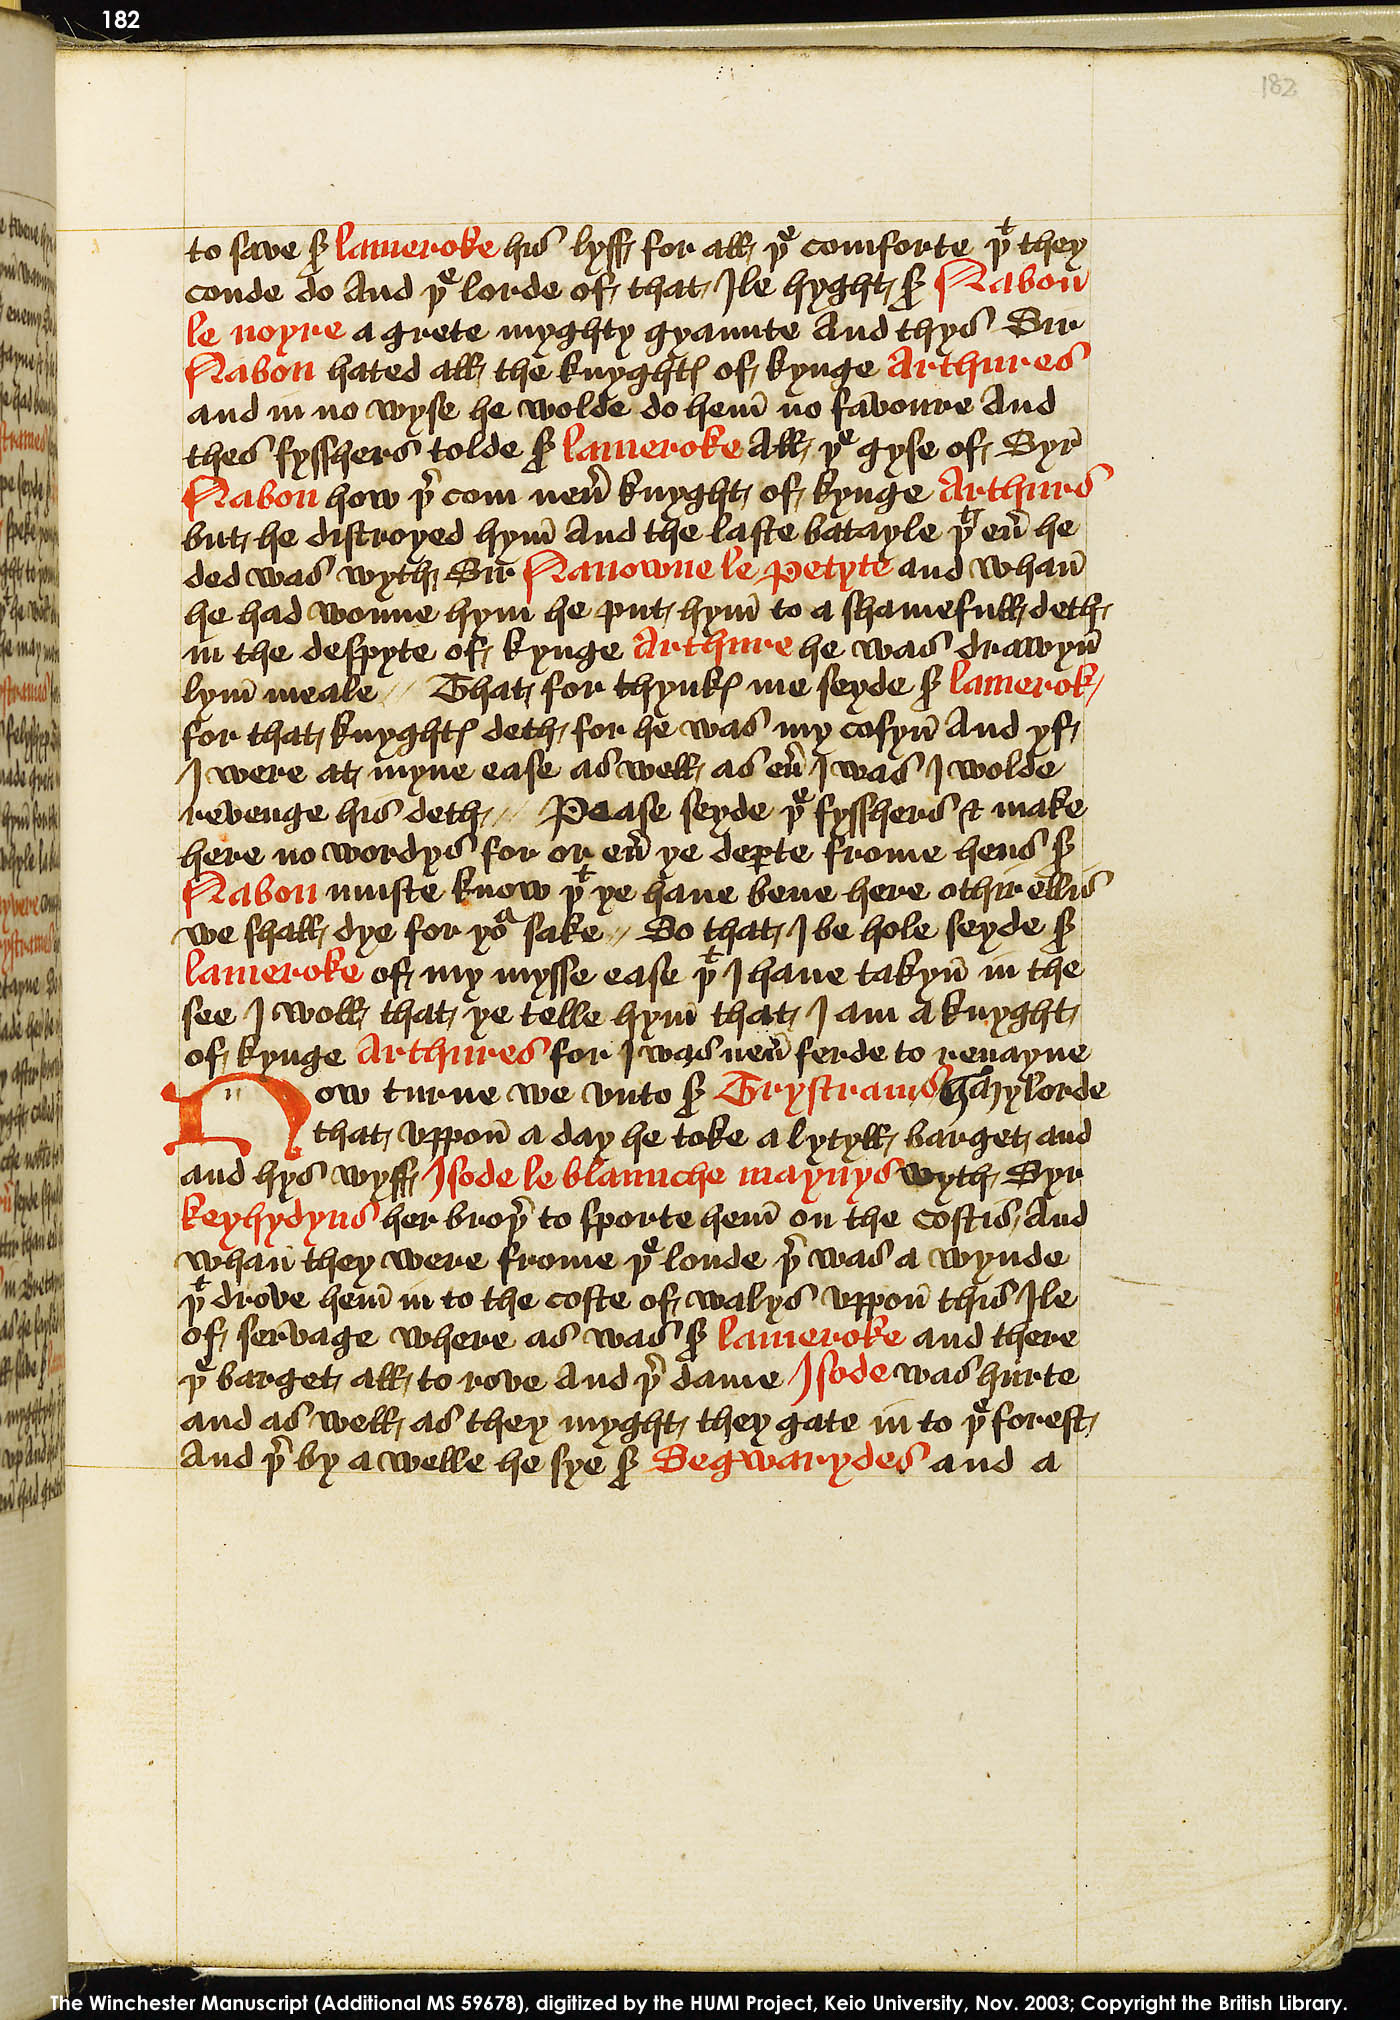 182
182
to save sͬ lameroke his lyff for all þͤ comforte þͭ they
conde do And þͤ lorde of that Ile hyght sͬ Nabon̄
le noyre a grete myghty gyaunte And thys Sir
Nabon hated all the knyghtꝭ of kynge Arthures
and in no wyse he wolde do hem̄ no favoure And
thes fysshers tolde sͬ lameroke All þͤ gyse of Syr̄
Nabon how þ̉ com neủ knyght of kynge Arthurs
but he distroyed hym̄ And the laste batayle þͭ eủ he
ded was wyth Sir Nanowne le petyte and whan̄
he had wonne hym he put hym̄ to a shamefull deth
in the despyte of kynge Arthure he was drawyn̄
lym̄ meale // That for thynkꝭ me seyde sͬ lamerok
for that knyghtꝭ deth for he was my cosyn̄ And yf
I were at myne ease as well as eủ I was I wolde
revenge his deth // Pease seyde þͤ fysshers & make
here no wordys for or eủ ye deꝑte frome hens sͬ
Nabon muste know þͭ ye haue bene here othir ellis
we shall dye for yoͬ sake // So that I be hole seyde sͬ
lameroke of my mysse ease þͭ I haue takyn̄ in the
see I woll that ye telle hym̄ that I am a knyght
of kynge Arthures for I was neủ ferde to renayne
Now turne we vnto sͬ Trystrams That my lorde
that vppon̄ a day he toke a lytyll barget and
and hys wyff Isode le blaunche maynys wyth Syr
keyhydyns her broþ̉ to sporte hem̄ on the costis And
whan̄ they were frome þͤ londe þ̉ was a wynde
þͭ drove hem̄ in to the coste of walys vppon̄ this Ile
of servage where as was sͬ lameroke and there
þͤ barget all to rove And þ̉ dame Isode was hurte
and as well as they myght they gate in to þͤ forest
And þ̉ by a welle he sye sͬ Segwarydes and a
The Winchester Manuscript (Additional MS 59678), digitized by the HUMI Project, Keio University, Nov. 2003; Copyright the British Library.